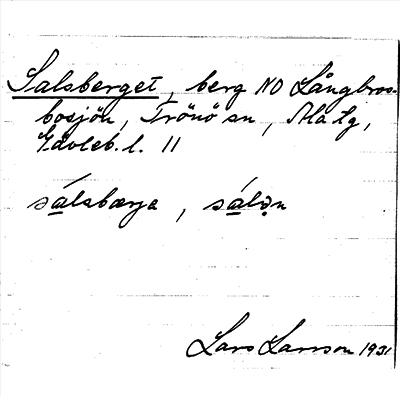 Salsberget, berg NO Långbros-
bosjön, Trönö sn, Ala tg,
Gävleb. l. 11
sálsbærja, sálǝn
Lars Larsson 1931